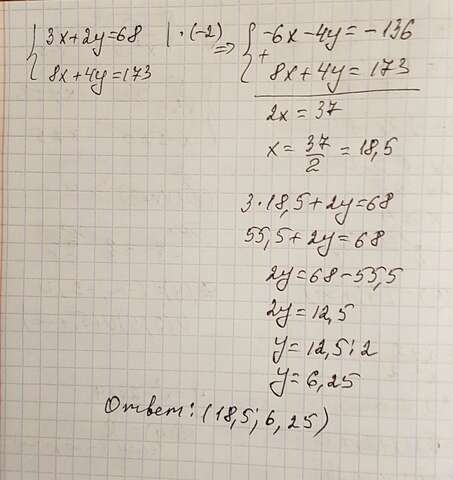 { 3x+2y=68 | · (-2) => { -6x-4y=-136
8x+4y=173 + 8x+4y=173
2x=37
x= 37/2 = 18,5
3·18,5+2y=68
55,5+2y=68
2y=68-55,5
2y=12,5
y=12,5:2
y=6,25
Ответ: (18,5; 6,25)